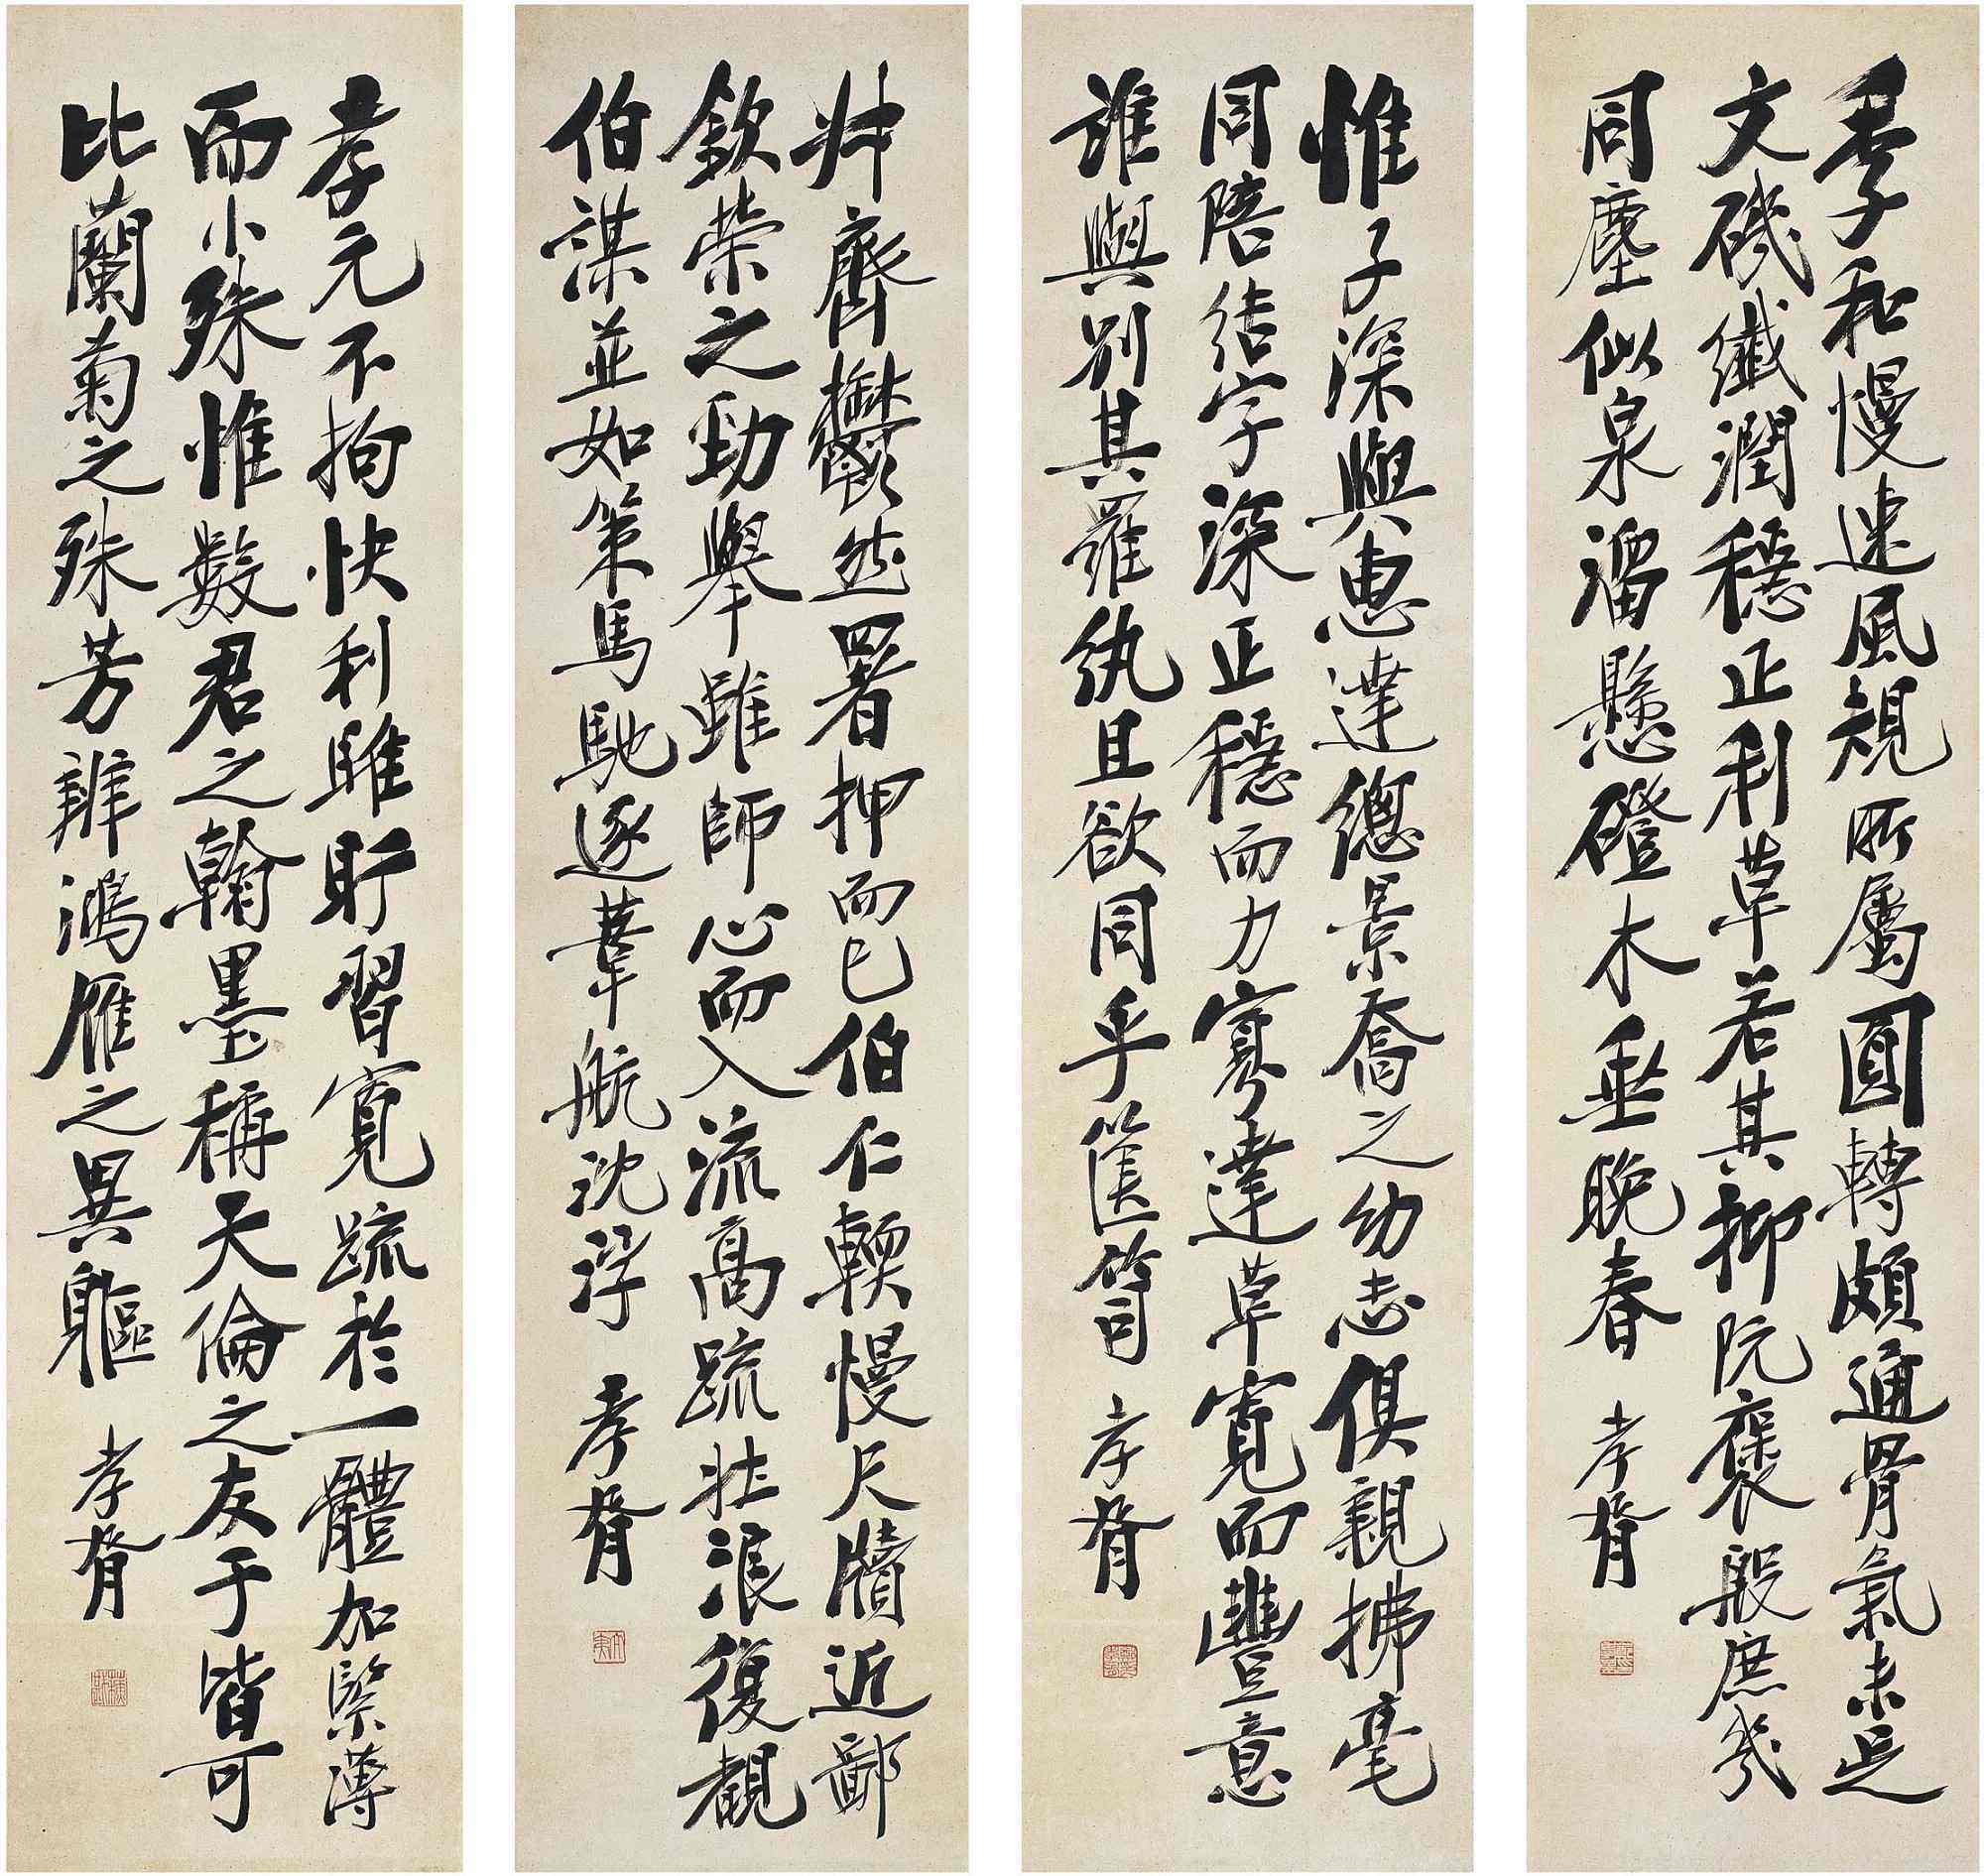 季和慢速風規所屬圓轉頗通骨氣未足
文磯纖潤穩正利草若其抑阮褒殷庶幾
同塵似泉溜懸磴木垂晚春 孝胥
惟子深與惠達總景喬之幼志俱親拂毫
同陪结字深正穩而力寡達草寬而豐意
誰與別其羅紈且欲同乎筐笥 孝胥
叔齊鬱然署押而已伯仁輭慢尺牘近鄙
欽榮之勁舉雖師心而入流高疏壯浪復觀
伯謀並如策馬馳逐葦航沈浮 孝胥
孝元不拘快利睢盱習寬疏於一體加緊薄
而小殊惟數君之翰墨稱天倫之友于皆可
比蘭菊之殊芳辨鴻雁之異軀 孝胥